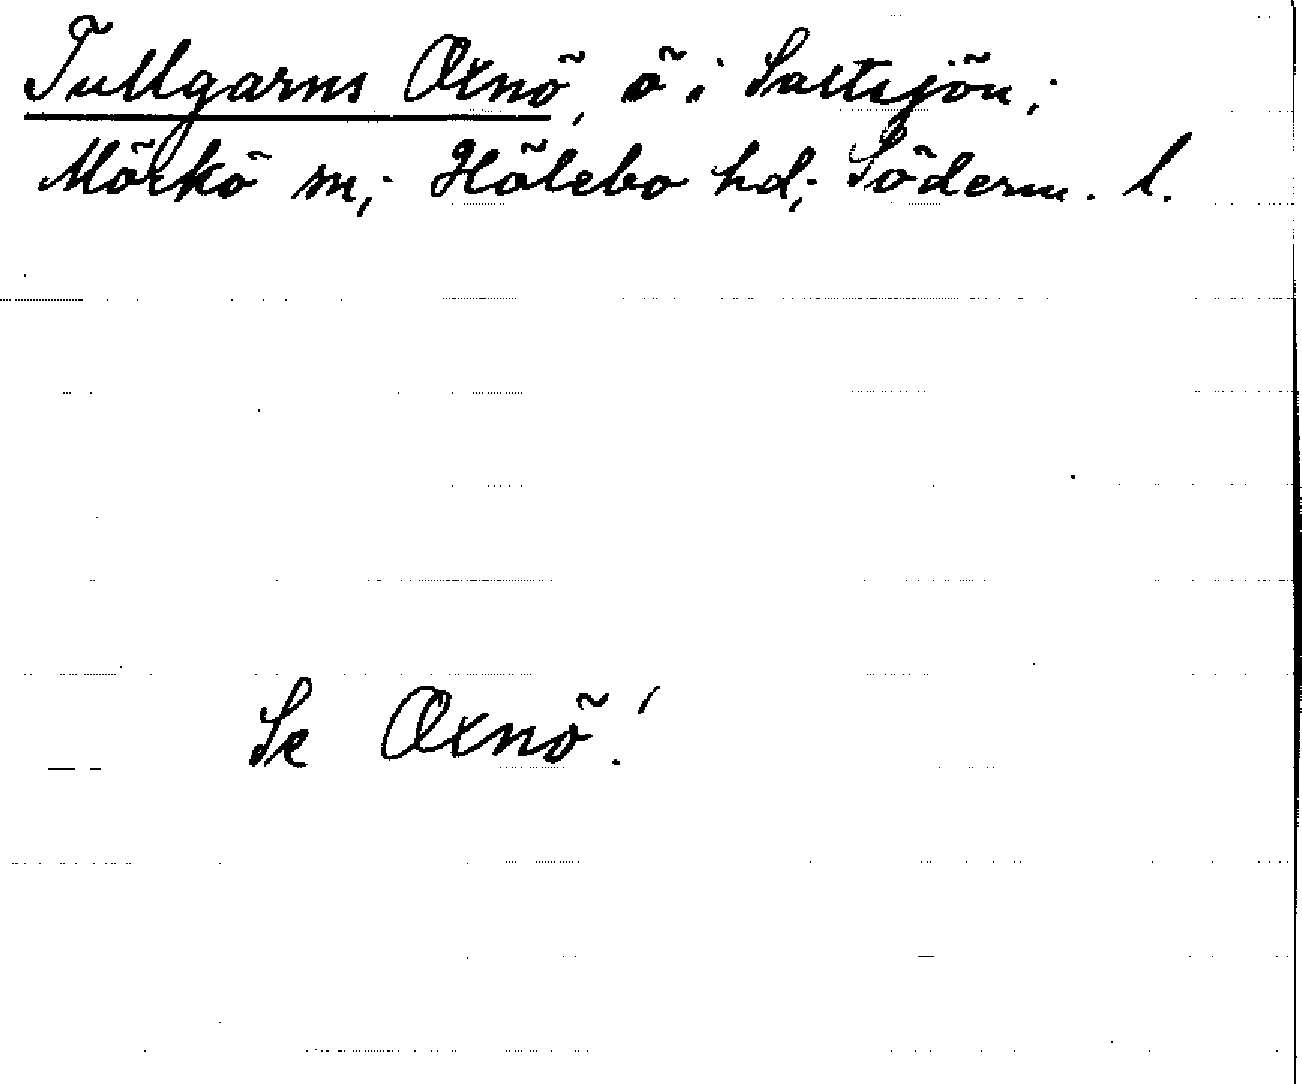 Tullgarns Oxnö, ö i Saltsjön;
Mörkö sn; Hölebo hd; Söderm. l.
Se Oxnö!